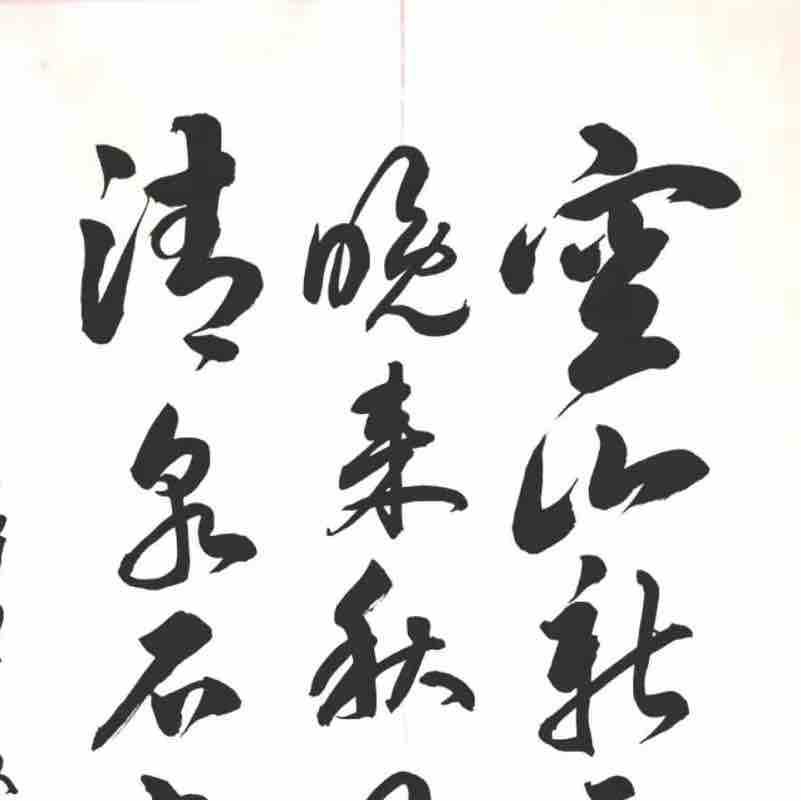 空山新
晚来秋
清泉石